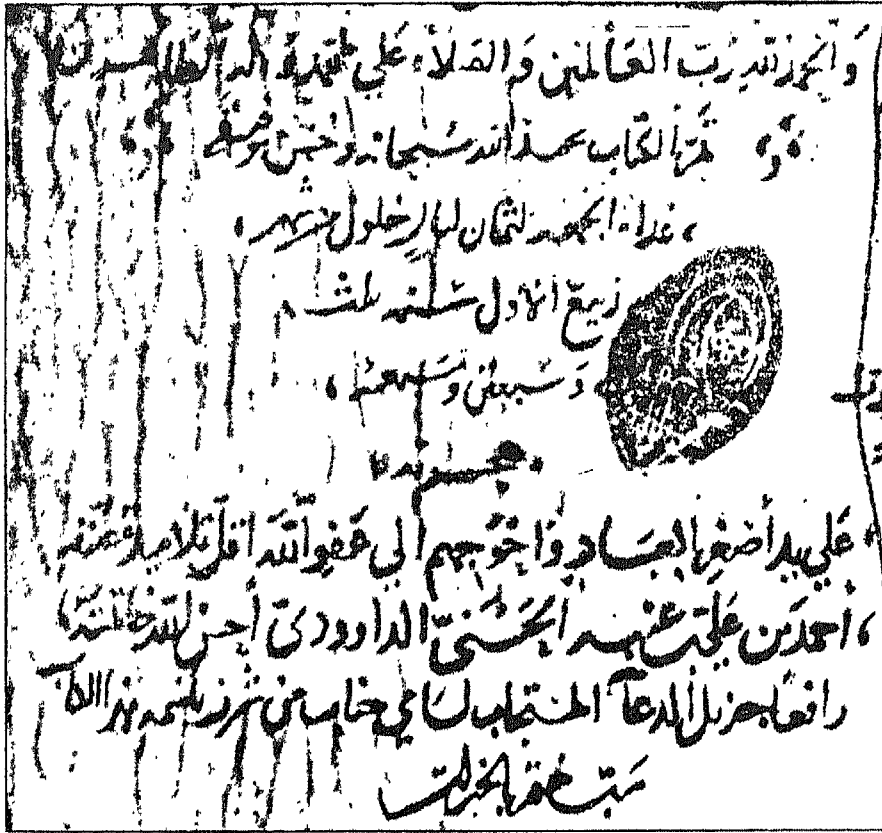 والحمد لله رب العالمين والصلاة علي محمد وآله الطاهرين
تم الكتاب بحمد الله سبحانه وحسن توفيقه
غداة الجمعة لثمان ليال خلون من شهر
ربيع الأول سنة ثلث
وسبعين وسبعمئة
علي يد أضعف العباد وأحوجهم إلي عفو الله أقل تلاميذ مصنفه
أحمد بن علي بن عنبه الحسني الداوودي أحسن الله خاتمته
رافعا جزيل الدعاء المستجاب لسامي جناب من شرف بنسخه هذا الكتاب